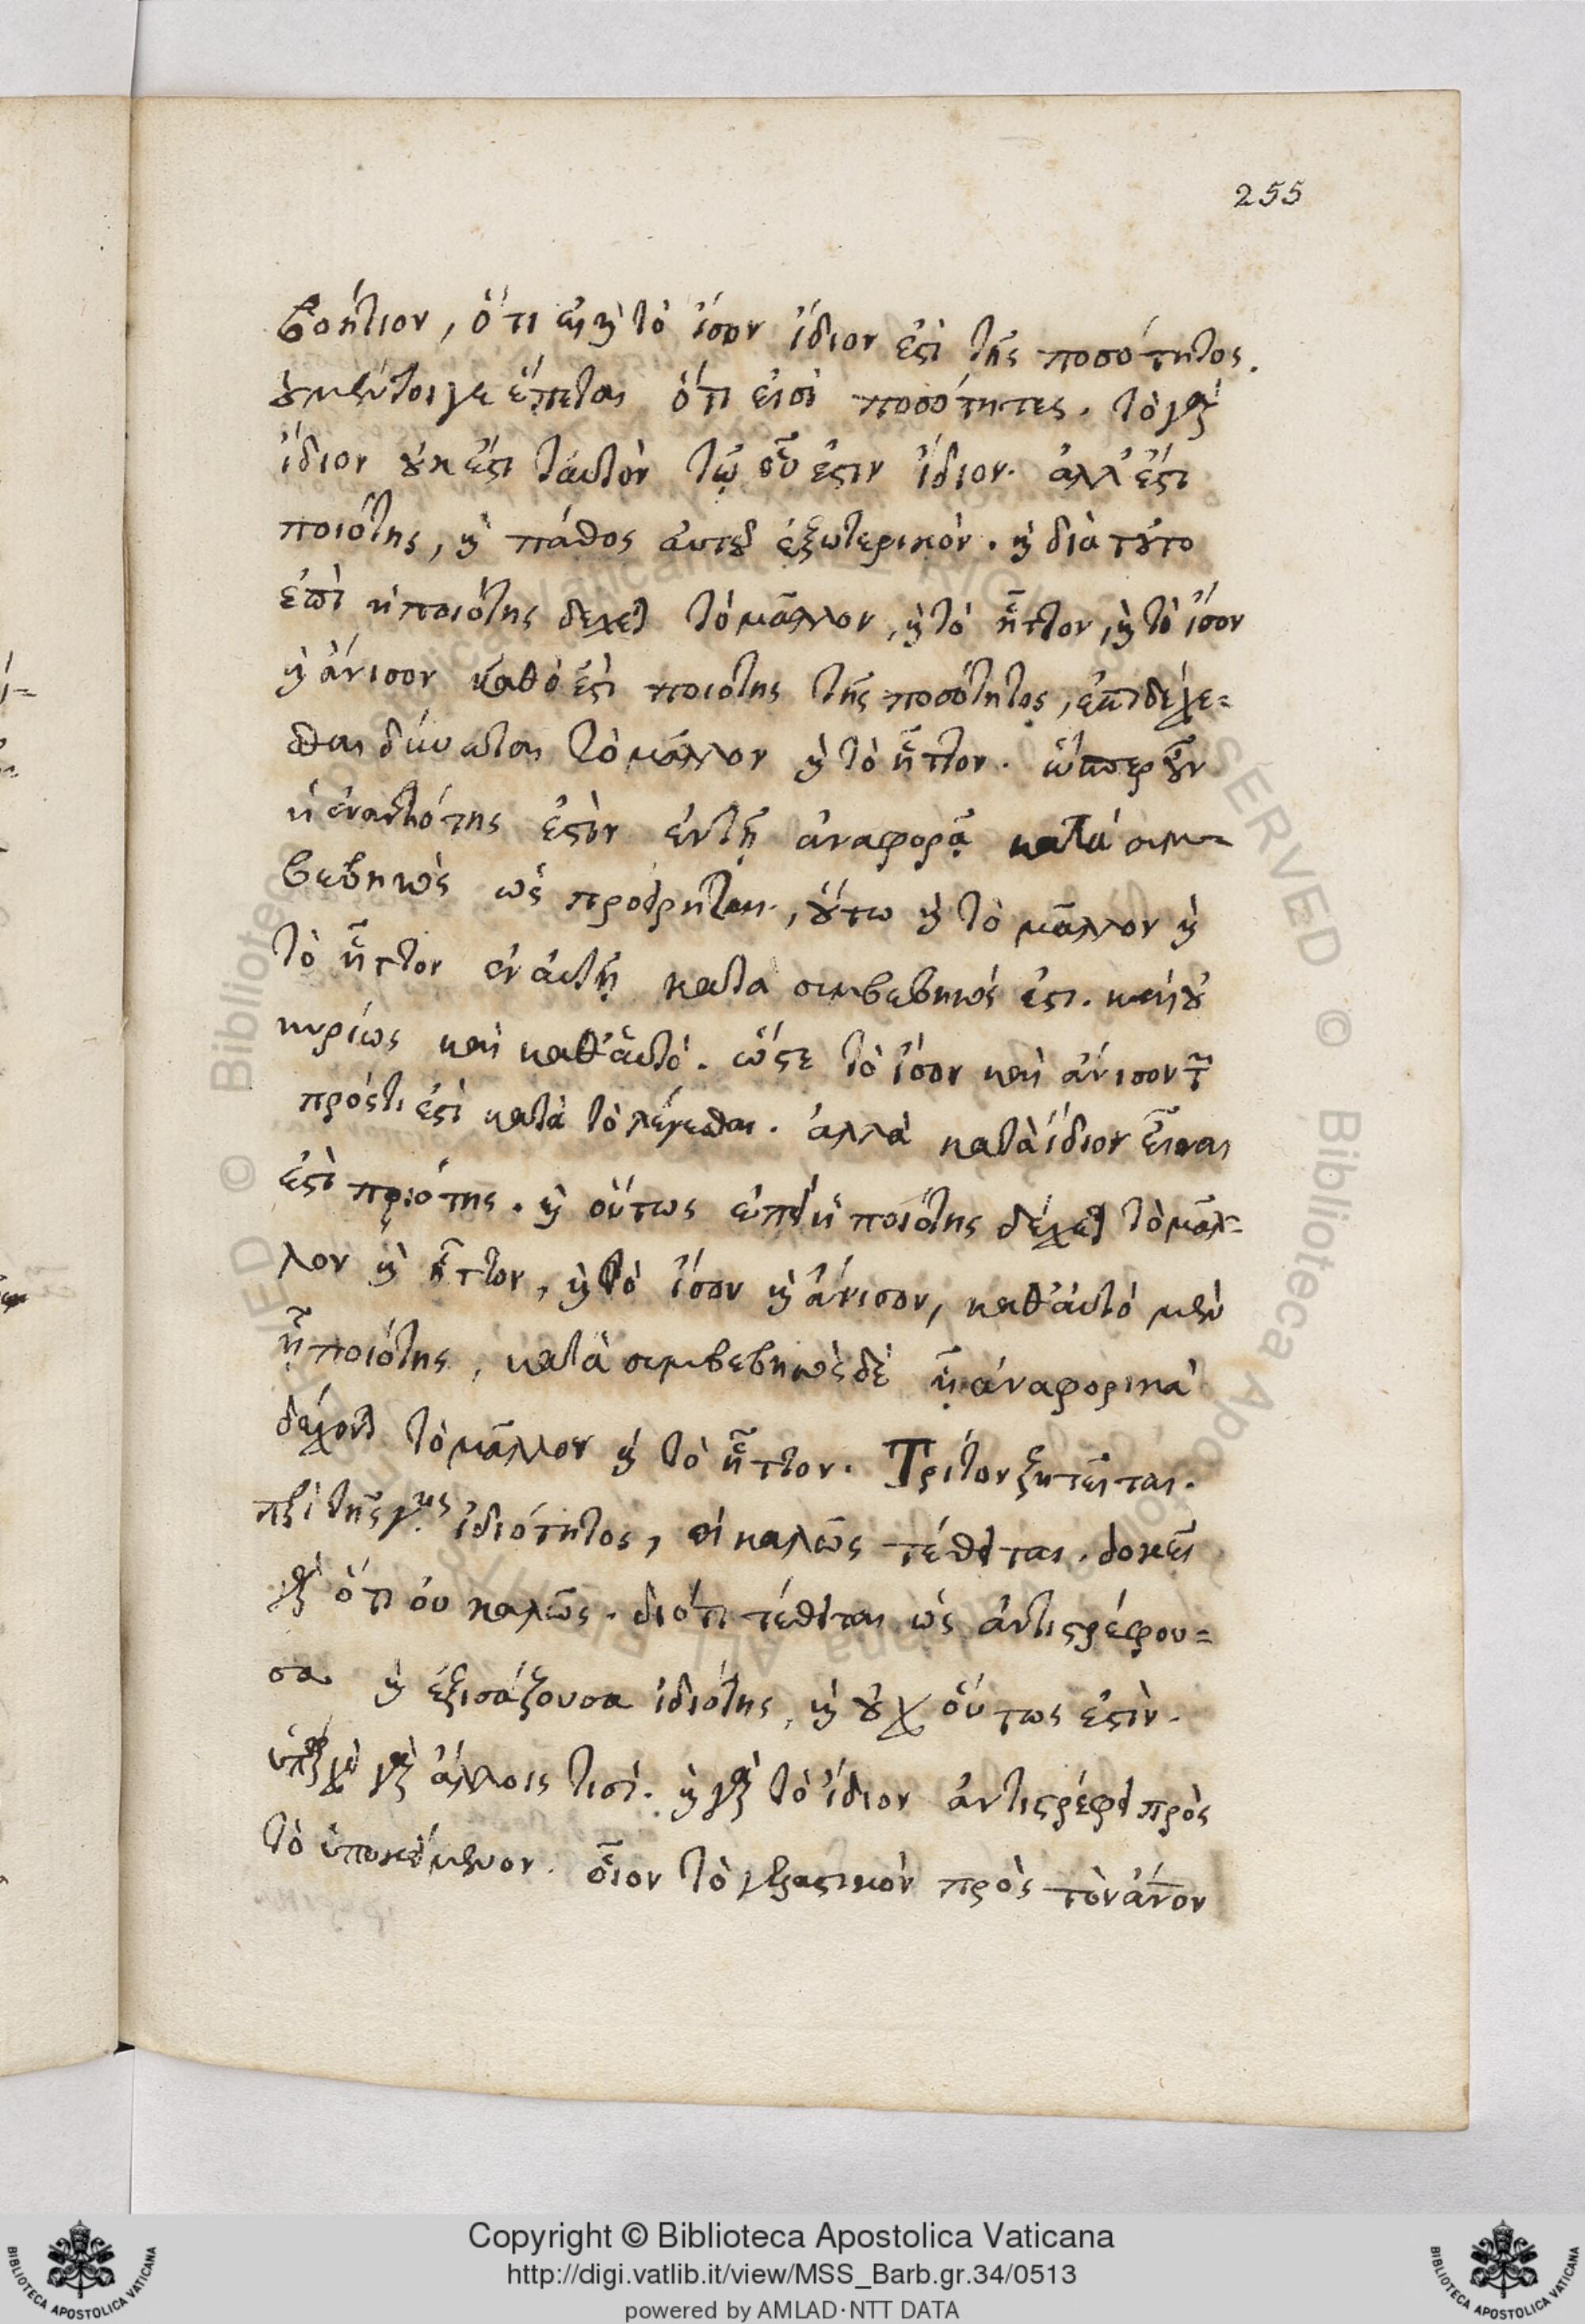 255
βοήτιον, ὅτι εἰ καὶ τὸ ἴσον ἴδιον ἐστὶ τῆς ποσότητος.
οὐ μέντοιγε ἕπεται ὅτι εἰσὶ ποσότητες. τὸ γὰρ
ἴδιον οὐκ ἔστι ταυτὸν τῷ οὗ ἐστιν ἴδιον. ἀλλ' ἔστι
ποιότης, καὶ πάθος αυτοῦ ἐξωτερικὸν. καὶ διὰ τοῦτο
ἐπὶ ἡ ποιότης δέχεται τὸ μᾶλλον, καὶ τὸ ἧττον, καὶ τὸ ἴσον
καὶ ἄνισον καθὸ ἐστὶ ποιότης τῆς ποσότητος, ἐπιδέχε=
σθαι δύναται τὸ μᾶλλον καὶ τὸ ἧττον. ὥσπερ οὖν
ἡ ἐναντιότης ἐστὶν ἐν τῇ ἀναφορᾷ κατὰ συμ=
βεβηκὸς ὡς προείρηται, οὕτω καὶ τὸ μᾶλλον καὶ
τὸ ἧττον ἐν αὐτῇ κατα συμβεβηκός ἐστι. καὶ οὐ
κυρίως καὶ καθ' αὑτό. ὥστε τὸ ἴσον καὶ ἄνισον τῶν
πρόςτι ἐστὶ κατὰ τὸ λέγεσθαι. ἀλλὰ κατὰ ἴδιον εἶναι
ἐστὶ ποιότης. καὶ οὕτως ἐπεὶ ἡ ποιότης δέχεται τὸ μᾶλ=
λον καὶ ἧττον, καὶ τὸ ἴσον καὶ ἄνισον, καθ' αὑτό μὲν
ᾗ ποιότης, κατὰ συμβεβηκὸς δὲ ᾗ ἀναφορικὰ
δέχονται τὸ μᾶλλον καὶ τὸ ἧττον. Τρίτον ζητεῖται.
περὶ τῆς γ.ης ἰδιότητος, εἰ καλῶς τέθειται. δοκεῖ
γὰρ ὅτι οὐ καλῶς. διότι τέθειται ὡς ἀντιστρέφου=
σα καὶ ἐξισάζουσα ἰδιότης, καὶ οὐχ οὕτως ἐστὶν.
ὑπάρχει γὰρ ἄλλοις τισί. καὶ γὰρ τὸ ἴδιον ἀντιστρέφει πρὸς
τὸ ὑποκείμενον. οἷον τὸ γελαστικὸν πρὸς τὸν ἄνον
Copyright © Biblioteca Apostolica Vaticana
http://digi.vatlib.it/view/MSS_Barb.gr.34/0513
powered by AMLAD·NTT DATA